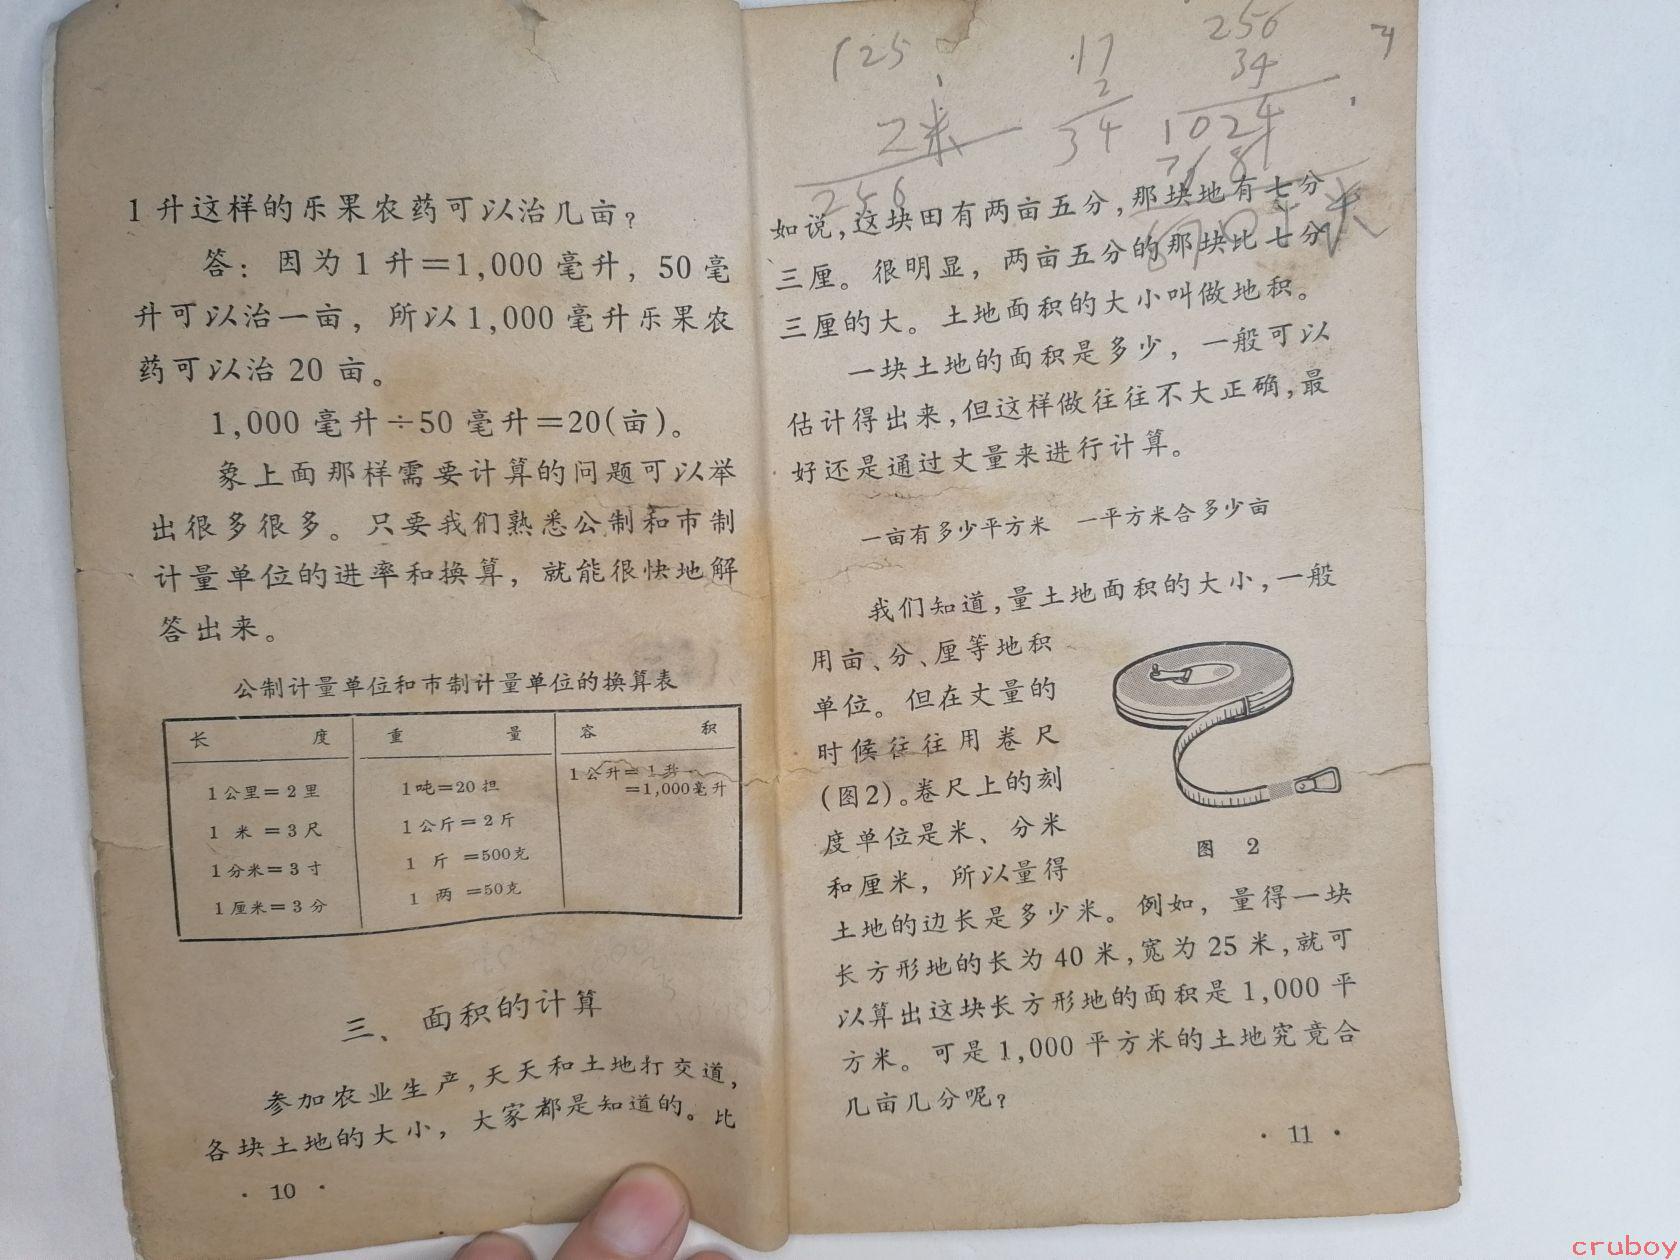 1升这样的乐果农药可以治几亩?
答：因为1升＝1,000毫升，50毫
升可以治一亩，所以1,000毫升乐果农
药可以治20亩。
1,000毫升÷50毫升＝20(亩)。
象上面那样需要计算的问题可以举
出很多很多。只要我们熟悉公制和市制
计量单位的进率和换算，就能很快地解
答出来。
公制计量单位和市制计量单位的换算表
长度 重量 容积
1公里＝2里 1吨＝20担 1公升＝1升
＝1,000毫升
1米＝3尺 1公斤＝2斤
1分米＝3寸 1斤＝500克
1厘米＝3分 1两＝50克
三、面积的计算
参加农业生产，天天和土地打交道，
各块土地的大小，大家都是知道的。比
· 10 ·
125 17 256
2 34
2米 34 1024
256 768
如说，这块田有两亩五分，那块地有七分
三厘。很明显，两亩五分的那块比七分
三厘的大。土地面积的大小叫做地积。
一块土地的面积是多少，一般可以
估计得出来，但这样做往往不大正确，最
好还是通过丈量来进行计算。
一亩有多少平方米 一平方米合多少亩
我们知道，量土地面积的大小，一般
用亩、分、厘等地积
单位。但在丈量的
时候往往用卷尺
(图2)。卷尺上的刻
度单位是米、分米
和厘米，所以量得
图 2
土地的边长是多少米。例如，量得一块
长方形地的长为40米，宽为25米，就可
以算出这块长方形地的面积是1,000平
方米。可是1,000平方米的土地究竟合
几亩几分呢?
· 11 ·
cruboy